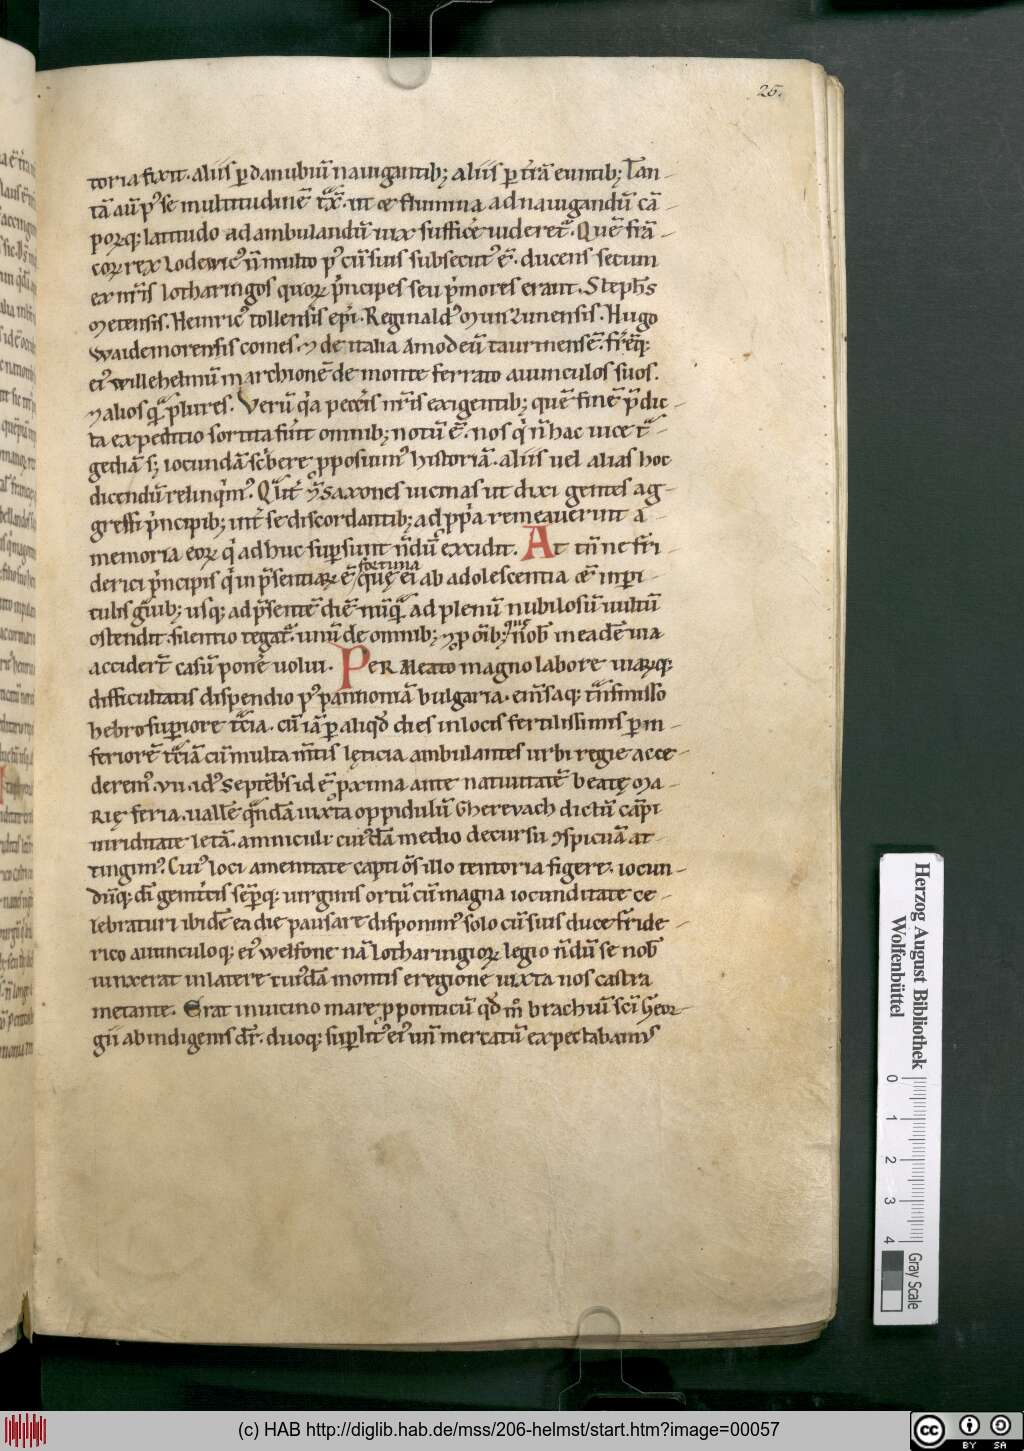 25.
toria fixit. aliis ꝑ danubiũ nauigantib; aliis ꝑ t̃rã euntib; Tan-
tã aũ p᾿ se multitudinẽ t̃x̃. ut ⁊ flumina ad nauigandũ cã-
poꝝq; latitudo ad ambulandũ uix sufficẽ uideret̃. Quẽ frã-
coꝝ rex Lodewic᾿ ñ multo p᾿ cũ suis subsecut᾿ ẽ. ducens secum
ex nr̃is lotharingos quoꝝ p̃ncipes seu p̃mores erant. Steph̃s
Metensis. Heinric᾿ tollensis ep̃i. Reginald᾿ Munzunensis. Hugo
Waidemorensis comes. ⁊ de italia Amodeũ taurinensẽ. fr̃eq̃;
ei᾿ willehelmũ marchionẽ de monte ferrato auunculos suos.
⁊ alios q̃ p̃lures. Verũ q̃a pecc̃is nr̃is exigentib; quẽ finẽ p̃dic-
ta expeditio sortita fũit omnib; notũ ẽ. nos q̃ ñ hac uice t̃-
gediã s; iocundã sc̃bere ꝓposuim᾿ historiã. aliis uel alias hoc
dicendũ relinqm᾿. Q̃lit̃ g̃ saxones uicinas ut dixi gentes ag-
gressi p̃ncipib; int̃ se discordantib; ad ꝓp̃a remeauerunt a
memoria eoꝝ q̃ adhuc suꝑsunt ñdũ excidit. At tñ ne fr̃i-
derici p̃ncipis q̃ in p̃sentiaꝝ ẽ fortuna quę ei ab adolescentia ⁊ in ꝑi-
culis g̃uib; usq; ad p̃sentẽ diẽ nũq̃ ad plenũ nubilosũ uultũ
ostendit. silentio tegat̃. unũ de omnib; ⁊ ꝓ oĩb; que ñob̃ in eadẽ uia
accider̃t casũ ponẽ uolui. Per Meato magno labore uiaꝝq;
difficultatis dispendio p᾿ pannoniã bulgaria. em̃saq; tñsimisso
hebro suꝑiore t̃cia. cũ iã ꝑ aliqd̃ dies in locis fertilissimis ꝑ in-
feriorẽ t̃ciã cũ multa m̃tis lęticia ambulantes urbi regie acce-
derem᾿. vii. id᾿ Septẽb̃s id ẽ ꝓxima ante natiuitatẽ beatę Ma-
rię feria. uallẽ q̃ndã iuxta oppidulũ Cherevach dictũ cãpi
uiriditate lętã. amniculi cui᾿dã medio decursu ⁊spicuã at-
tingim᾿. Cui᾿ loci amenitate capti õs illo tentoria figere. iocun-
dũq; dĩ genitcis sẽꝑq; uirginis ortũ cũ magna iocunditate ce-
lebraturi ibidẽ ea die pausare disponim᾿ solo cũ suis duce fr̃ide-
rico auunculoq; ei᾿ welfone nã lotharingioꝝ legio ñdũ se nob̃
iunxerat in latere cui᾿dã montis e regione iuxta nos castra
metante. Erat in uicino mare ꝓponticũ qd̃ m̊ brachiũ sc̃i Geor-
gii ab indigenis dr̃. duoq; suꝑlit᾿ ei᾿ uñ mercatũ expectabam᾿
Herzog August Bibliothek
Wolfenbüttel
0 1 2 3 4
Gray Scale
(c) HAB http://diglib.hab.de/mss/206-helmst/start.htm?image=00057
cc BY SA